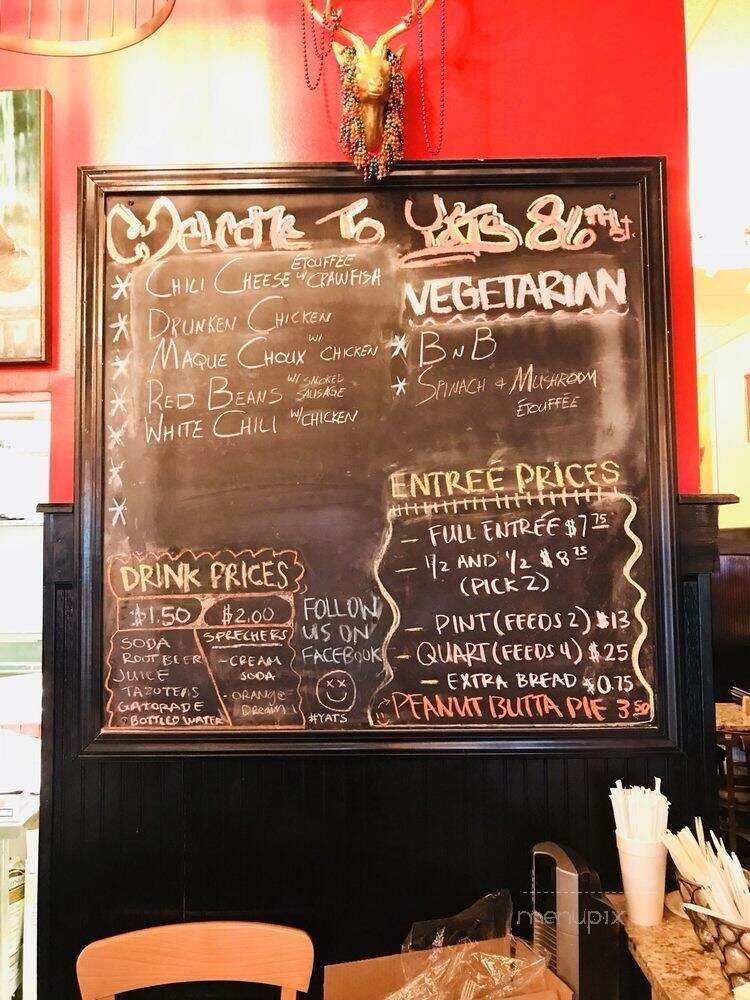 Welcome To Yats 86th St.
* Chili Cheese Étouffée w/ Crawfish
* Drunken Chicken
* Maque Choux w/ Chicken
* Red Beans w/ Smoked Sausage
* White Chili w/ Chicken
*
*
VEGETARIAN
* B n B
* Spinach & Mushroom
Étouffée
ENTREÉ PRICES
- FULL ENTRÉE $7.75
- 1/2 AND 1/2 $8.75
(PICK 2)
- PINT (FEEDS 2) $13
- QUART (FEEDS 4) $25
- EXTRA BREAD $0.75
PEANUT BUTTA PIE 3.50
DRINK PRICES
$1.50
SODA
ROOT BEER
JUICE
TAZO TEAS
GATORADE
BOTTLED WATER
$2.00
SPRECHERS
- CREAM
SODA
- ORANGE
Dream
FOLLOW
US ON
FACEBOOK
#YATS
menupix